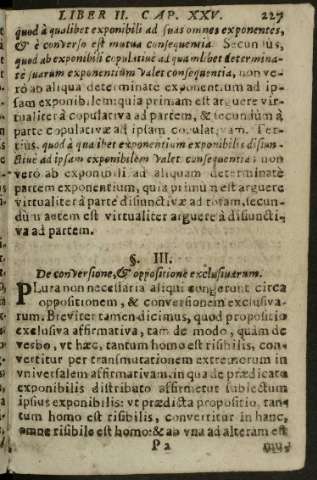 LIBER II. CAP. XXV. 227
quod à qualibet exponibili ad suas omnes exponentes,
& è converso est mutua consequentia. Secundus,
quod ab exponibili copulatiuè ad quamlibet determina-
te suarum exponentium valet consequentia, non ve-
rò ab aliqua determinate exponentium ad ip-
sam exponibilem: quia primam est arguere vir-
tualiter à copulativa ad partem, & secundùm à
parte copulativæ ad ipsam copulatiuam. Ter-
tius, quod à qualibet exponentium exponibilis disiun-
ctiuè ad ipsam exponibilem valet consequentia: non
verò ab exponibili ad aliquam determinatè
partem exponentium, quia primũ n est arguere
virtualiter à parte disiunctivæ ad totam, secun-
dù n autem est virtualiter arguere à disiuncti-
va ad partem.
§. III.
De conversione, & oppositione exclusiuarum.
PLura non necessaria aliqui congerunt circa
oppositionem, & conversionem exclusiva-
rum. Breviter tamen dicimus, quod propositio
exclusiva affirmativa, tam de modo, quàm de
verbo, vt hæc, tantum homo est risibilis, con-
vertitur per transmutationem extremorum in
vniversalem affirmativam, in qua de prædicato
exponibilis distributo affirmetur subiectum
ipsius exponibilis: vt prædicta propositio, tan-
tum homo est risibilis, convertitur in hanc,
omne risibile est homo: & ab vna ad alteram est
P 2 mu-